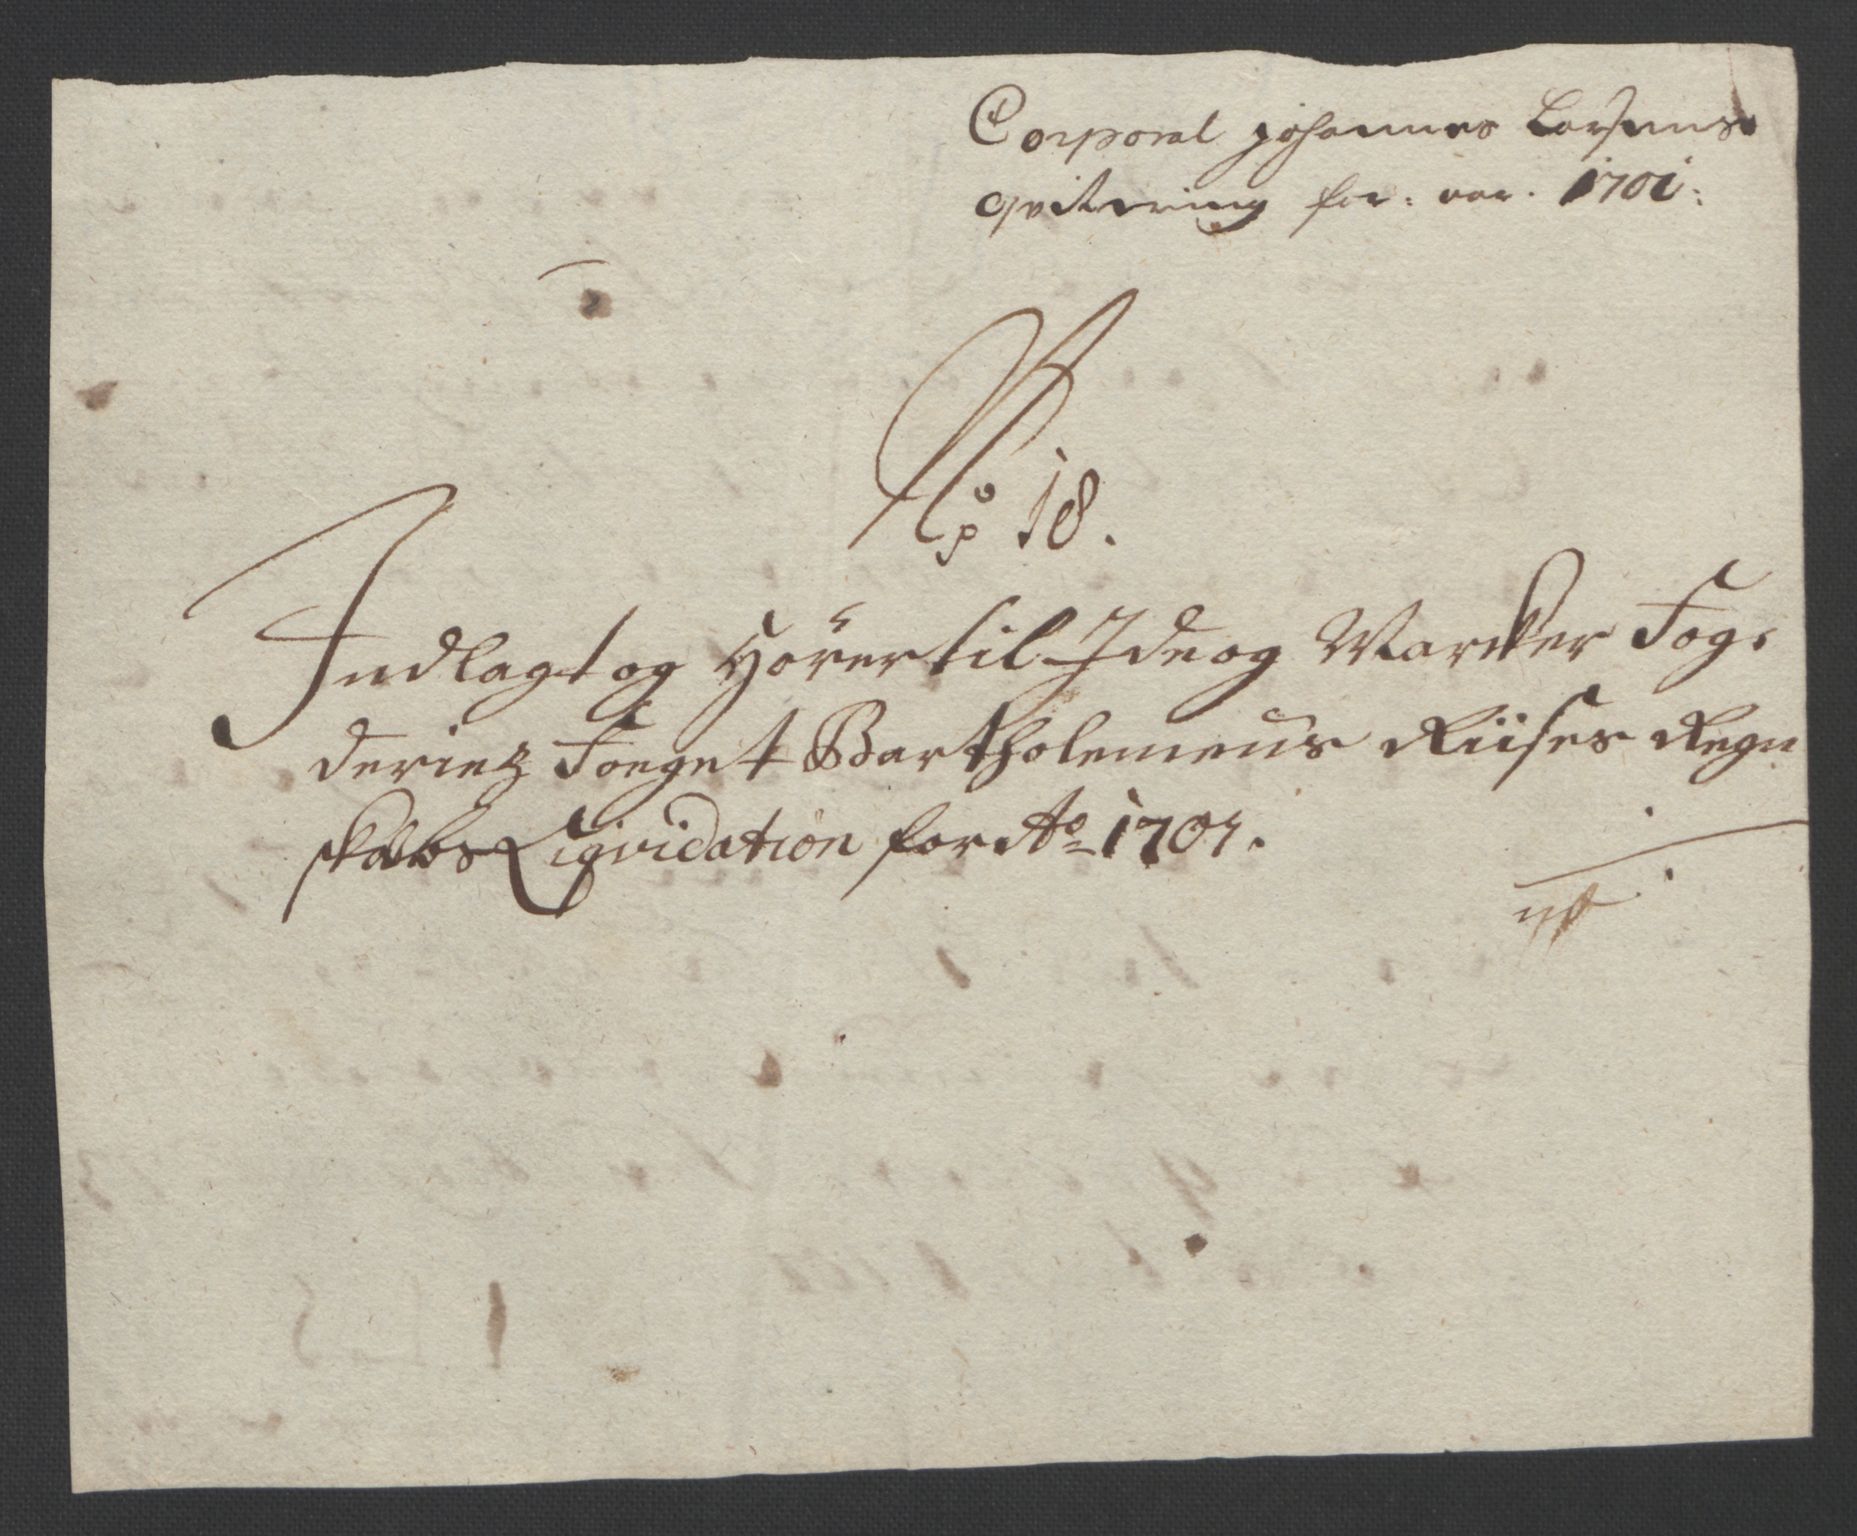 Corporal Johannes Larsens
qvitering for: aar. 1701:
No 18.
Indlagt og Hörer til Ide og Marcker Fog-
deriets Foeget Bartholemeus Riises Regn
skabs Liqvidation for Ao 1701.